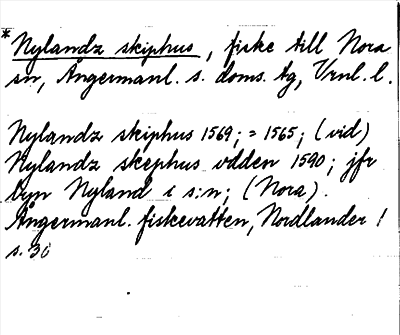 * Nylandz skiphus, fiske till Nora
sn, Ångermanl. s. doms. tg, Vrnl. l.
Nylandz skiphus 1569; = 1565; (vid)
Nylandz skephus vdden 1590; jfr
byn Nyland i s:n; (Nora).
Ångermanl. fiskevatten, Nordlander 1
s. 30